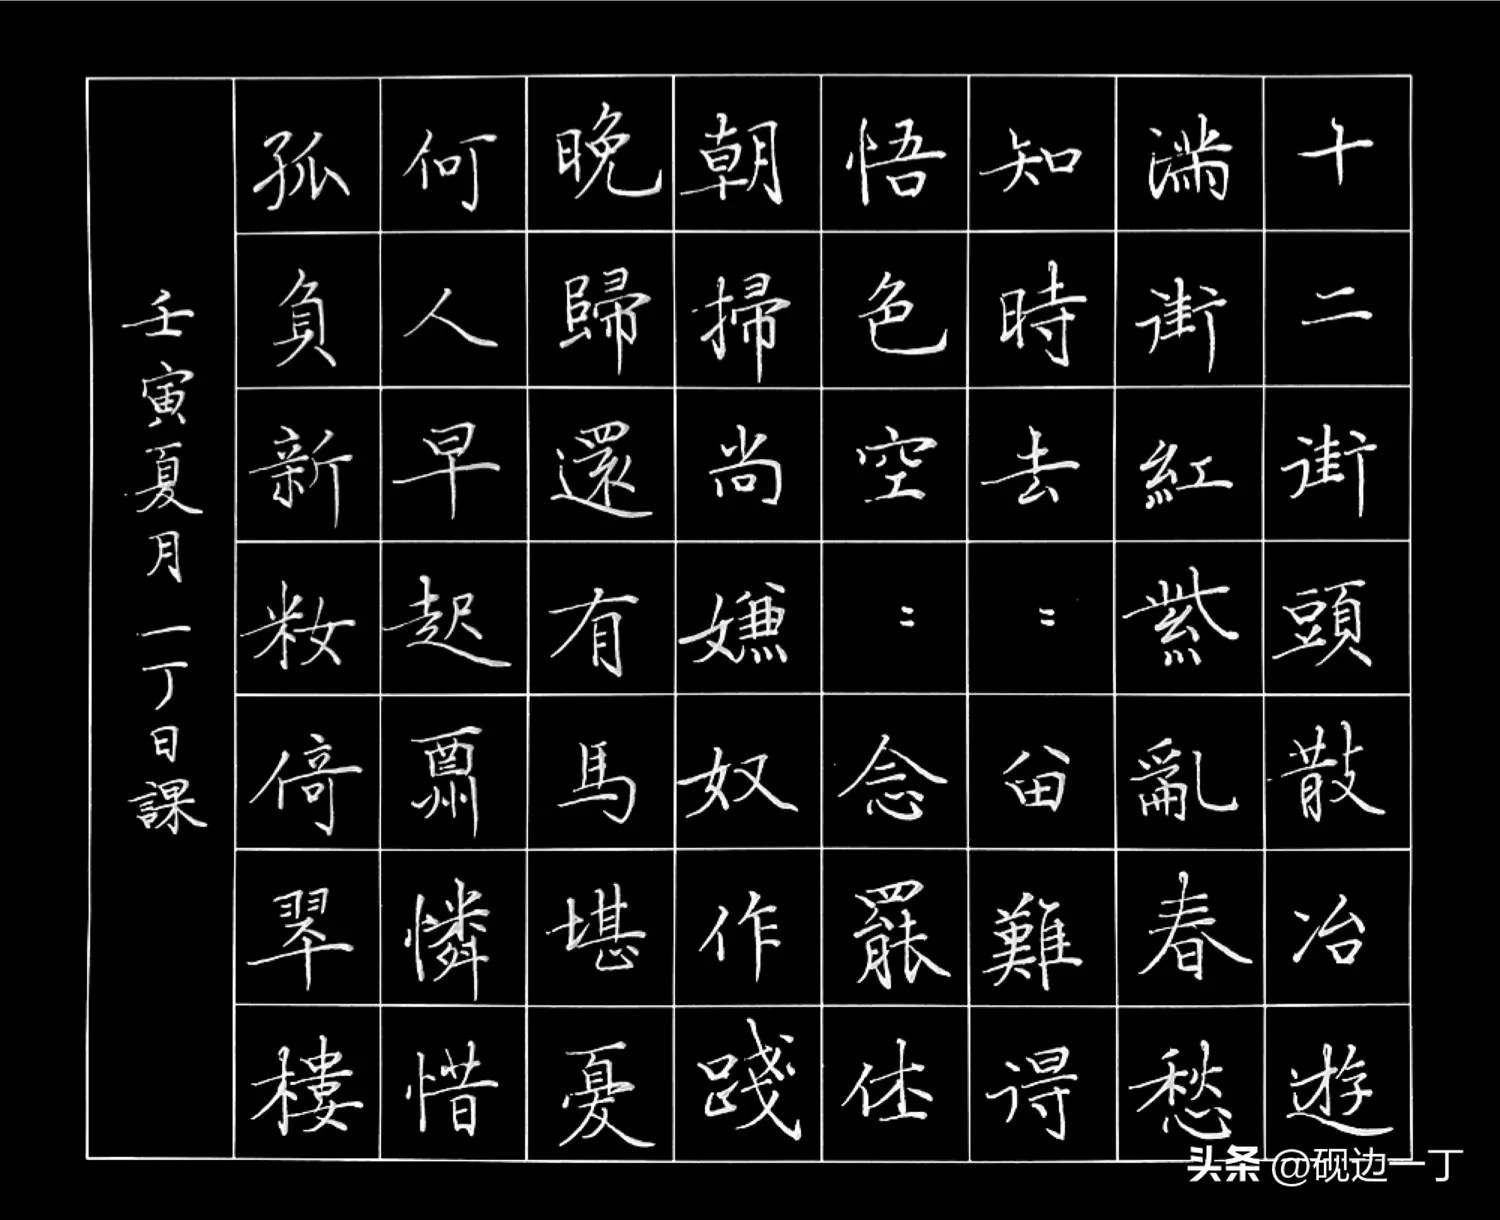 十二街頭散冶遊
滿街紅紫亂春愁
知時去〻留難得
悟色空〻念罷休
朝掃尚嫌奴作踐
晚歸還有馬堪憂
何人早起酬憐惜
孤負新籹倚翠樓
壬寅夏月 一丁日課
头条 @砚边一丁